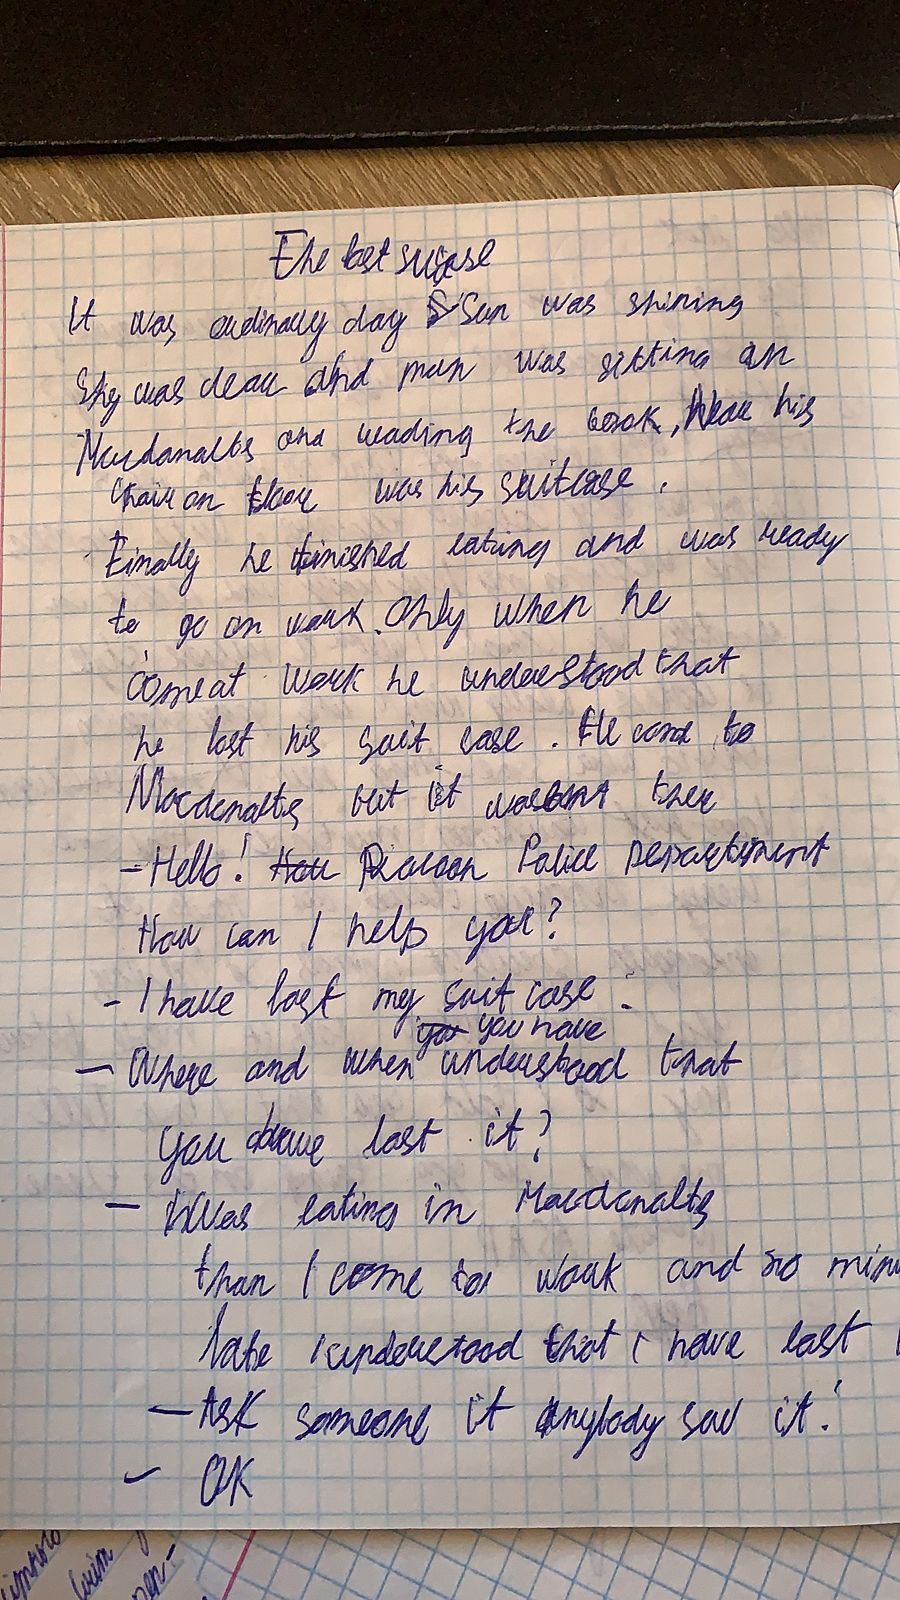 The lost sucase
It was ordinally day Sun was shining
Sky was clear and man was sitting on
Macdonalts and reading the book, Near his
chair on floor was his suitcase.
Finally he finished eating and was ready
to go on work. Only when he
come at work he understood that
he lost his suit case. He come to
Macdonalts but it wasent ther
- Hello! Racoon Police Department
How can I help you?
- I have lost my suit case.
you have
- Where and when understood that
you have lost it?
- I was eating in Macdonalts
than I come to work and 20 minu
late I understood that I have lost
- Ask someone if anybody saw it!
- OK